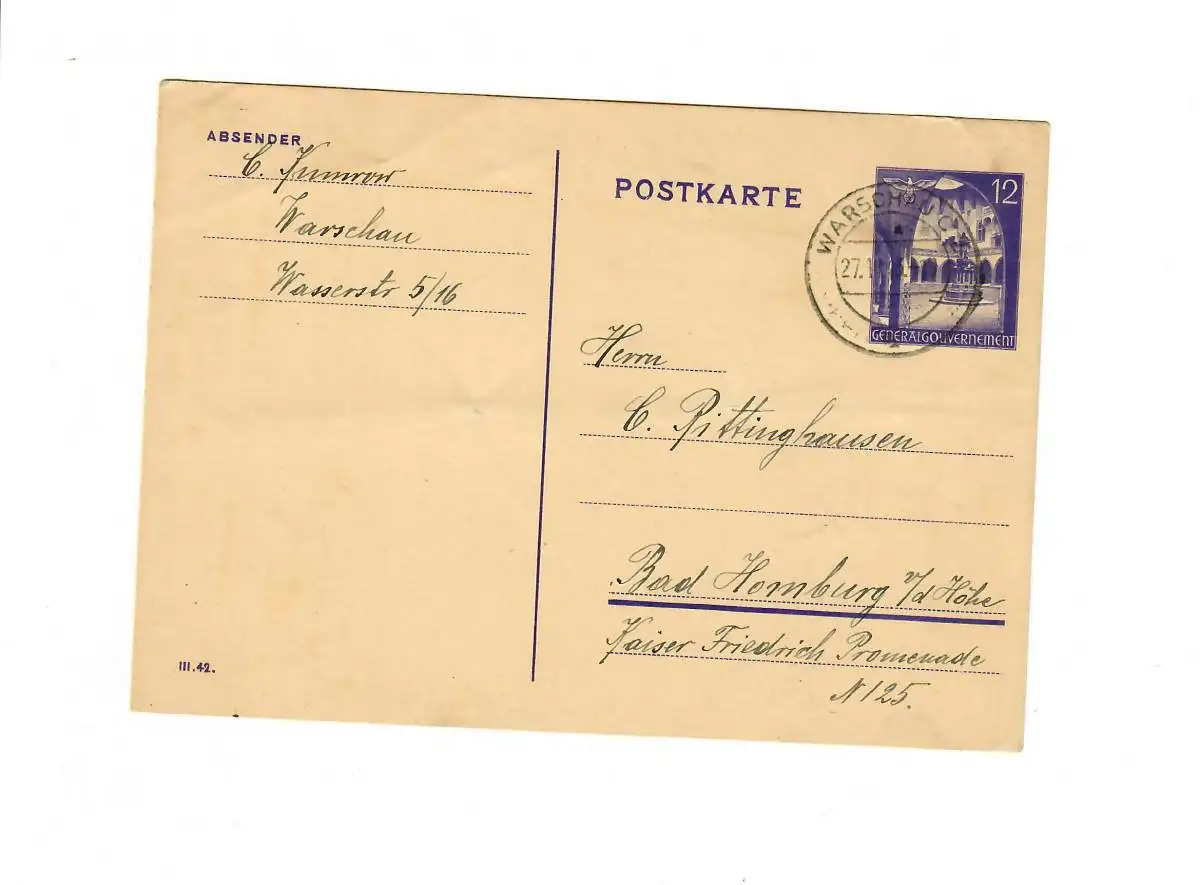 ABSENDER
C. Kumrow
Warschau
Wasserstr 5/16
III.42.
POSTKARTE
12
WARSCHAU C
27.
GENERALGOUVERNEMENT
Herrn
C. Rittinghausen
Bad Homburg v/d Höhe
Kaiser Friedrich Promenade
N 125.